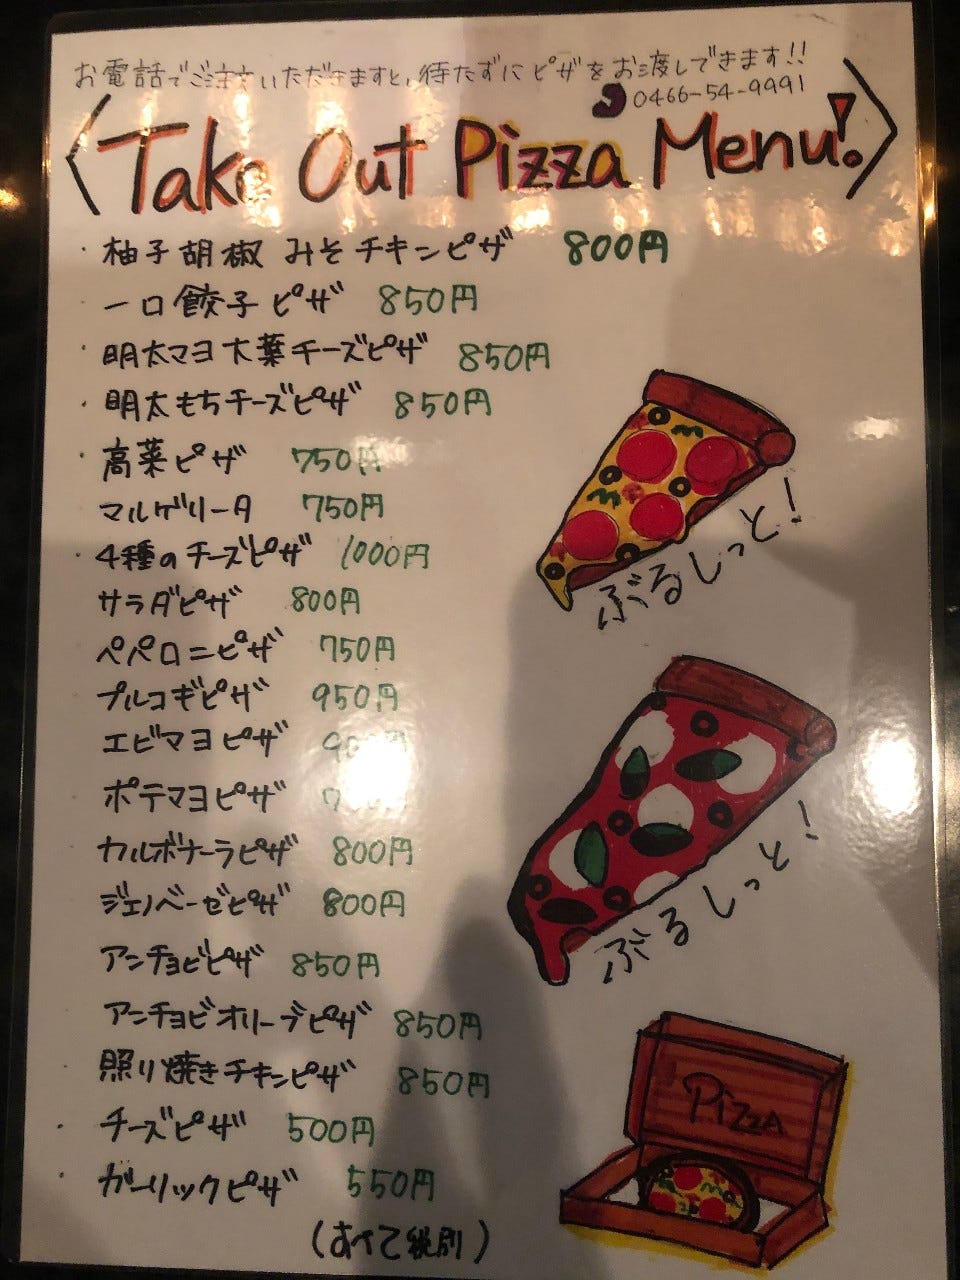 お電話でご注文いただきますと、待たずにピザをお渡しできます!!
0466-54-9991
〈Take Out Pizza Menu!〉
・柚子胡椒 みそチキンピザ 800円
・一口餃子ピザ 850円
・明太マヨ大葉チーズピザ 850円
・明太もちチーズピザ 850円
・高菜ピザ 750円
マルゲリータ 750円
・4種のチーズピザ 1000円
サラダピザ 800円
ペパロニピザ 750円
プルコギピザ 950円
エビマヨピザ
ポテマヨピザ
カルボナーラピザ 800円
ジェノベーゼピザ 800円
アンチョビピザ 850円
アンチョビオリーブピザ 850円
照り焼きチキンピザ 850円
・チーズピザ 500円
・ガーリックピザ 550円
(すべて税別)
ぶるしっと!
ぶるしっと!
Pizza